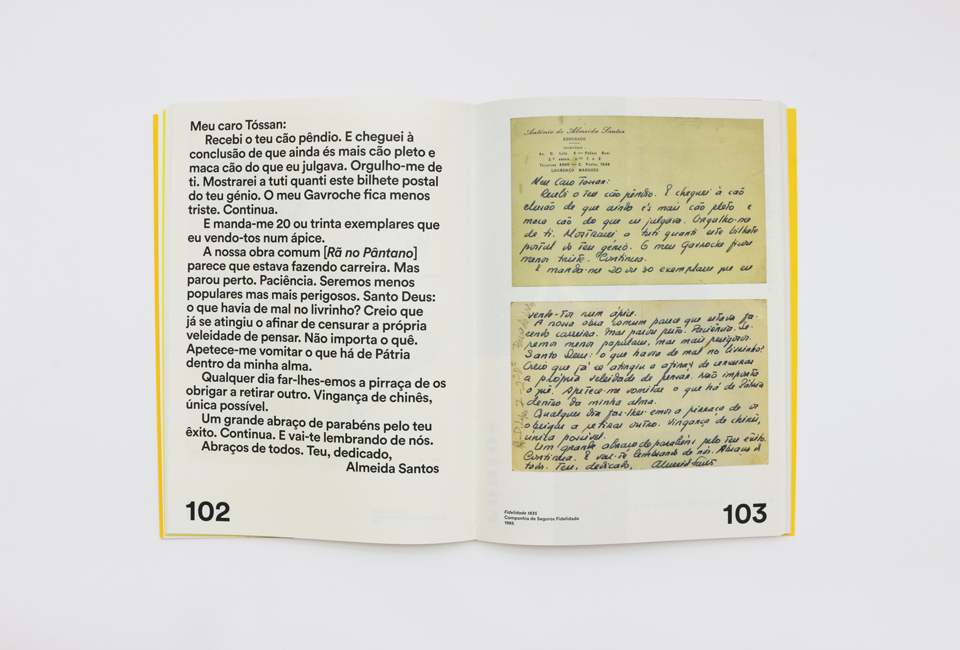 Meu caro Tóssan:
Recebi o teu cão pêndio. E cheguei à
conclusão de que ainda és mais cão pleto e
maca cão do que eu julgava. Orgulho-me de
ti. Mostrarei a tuti quanti este bilhete postal
do teu génio. O meu Gavroche fica menos
triste. Continua.
E manda-me 20 ou trinta exemplares que
eu vendo-tos num ápice.
A nossa obra comum [Rã no Pântano]
parece que estava fazendo carreira. Mas
parou perto. Paciência. Seremos menos
populares mas mais perigosos. Santo Deus:
o que havia de mal no livrinho? Creio que
já se atingiu o afinar de censurar a própria
veleidade de pensar. Não importa o quê.
Apetece-me vomitar o que há de Pátria
dentro da minha alma.
Qualquer dia far-lhes-emos a pirraça de os
obrigar a retirar outro. Vingança de chinês,
única possível.
Um grande abraço de parabéns pelo teu
êxito. Continua. E vai-te lembrando de nós.
Abraços de todos. Teu, dedicado,
Almeida Santos
102
António de Almeida Santos
ADVOGADO
LOURENÇO MARQUES
Meu Caro Tóssan:
Recebi o teu cão pêndio. E cheguei à con
clusão de que ainda és mais cão pleto e
maca cão do que eu julgava. Orgulho-me
de ti. Mostrarei a tuti quanti este bilhete
postal do teu génio. O meu Gavroche fica
menos triste. Continua.
E manda-me 20 ou 30 exemplares que eu
vendo-tos num ápice.
A nossa obra comum parece que estava fa-
zendo carreira. Mas parou perto. Paciência. Se-
remos menos populares, mas mais perigosos.
Santo Deus: o que havia de mal no livrinho?
Creio que já se atingiu o afinar de censurar
a própria veleidade de pensar. Não importa
o quê. Apetece-me vomitar o que há de Pátria
dentro da minha alma.
Qualquer dia far-lhes-emos a pirraça de os
obrigar a retirar outro. Vingança de chinês,
única possível.
Um grande abraço de parabéns pelo teu êxito.
Continua. E vai-te lembrando de nós. Abraços de
todos. Teu, dedicado, Almeida Santos
Fidelidade 1835
Companhia de Seguros Fidelidade
1986
103